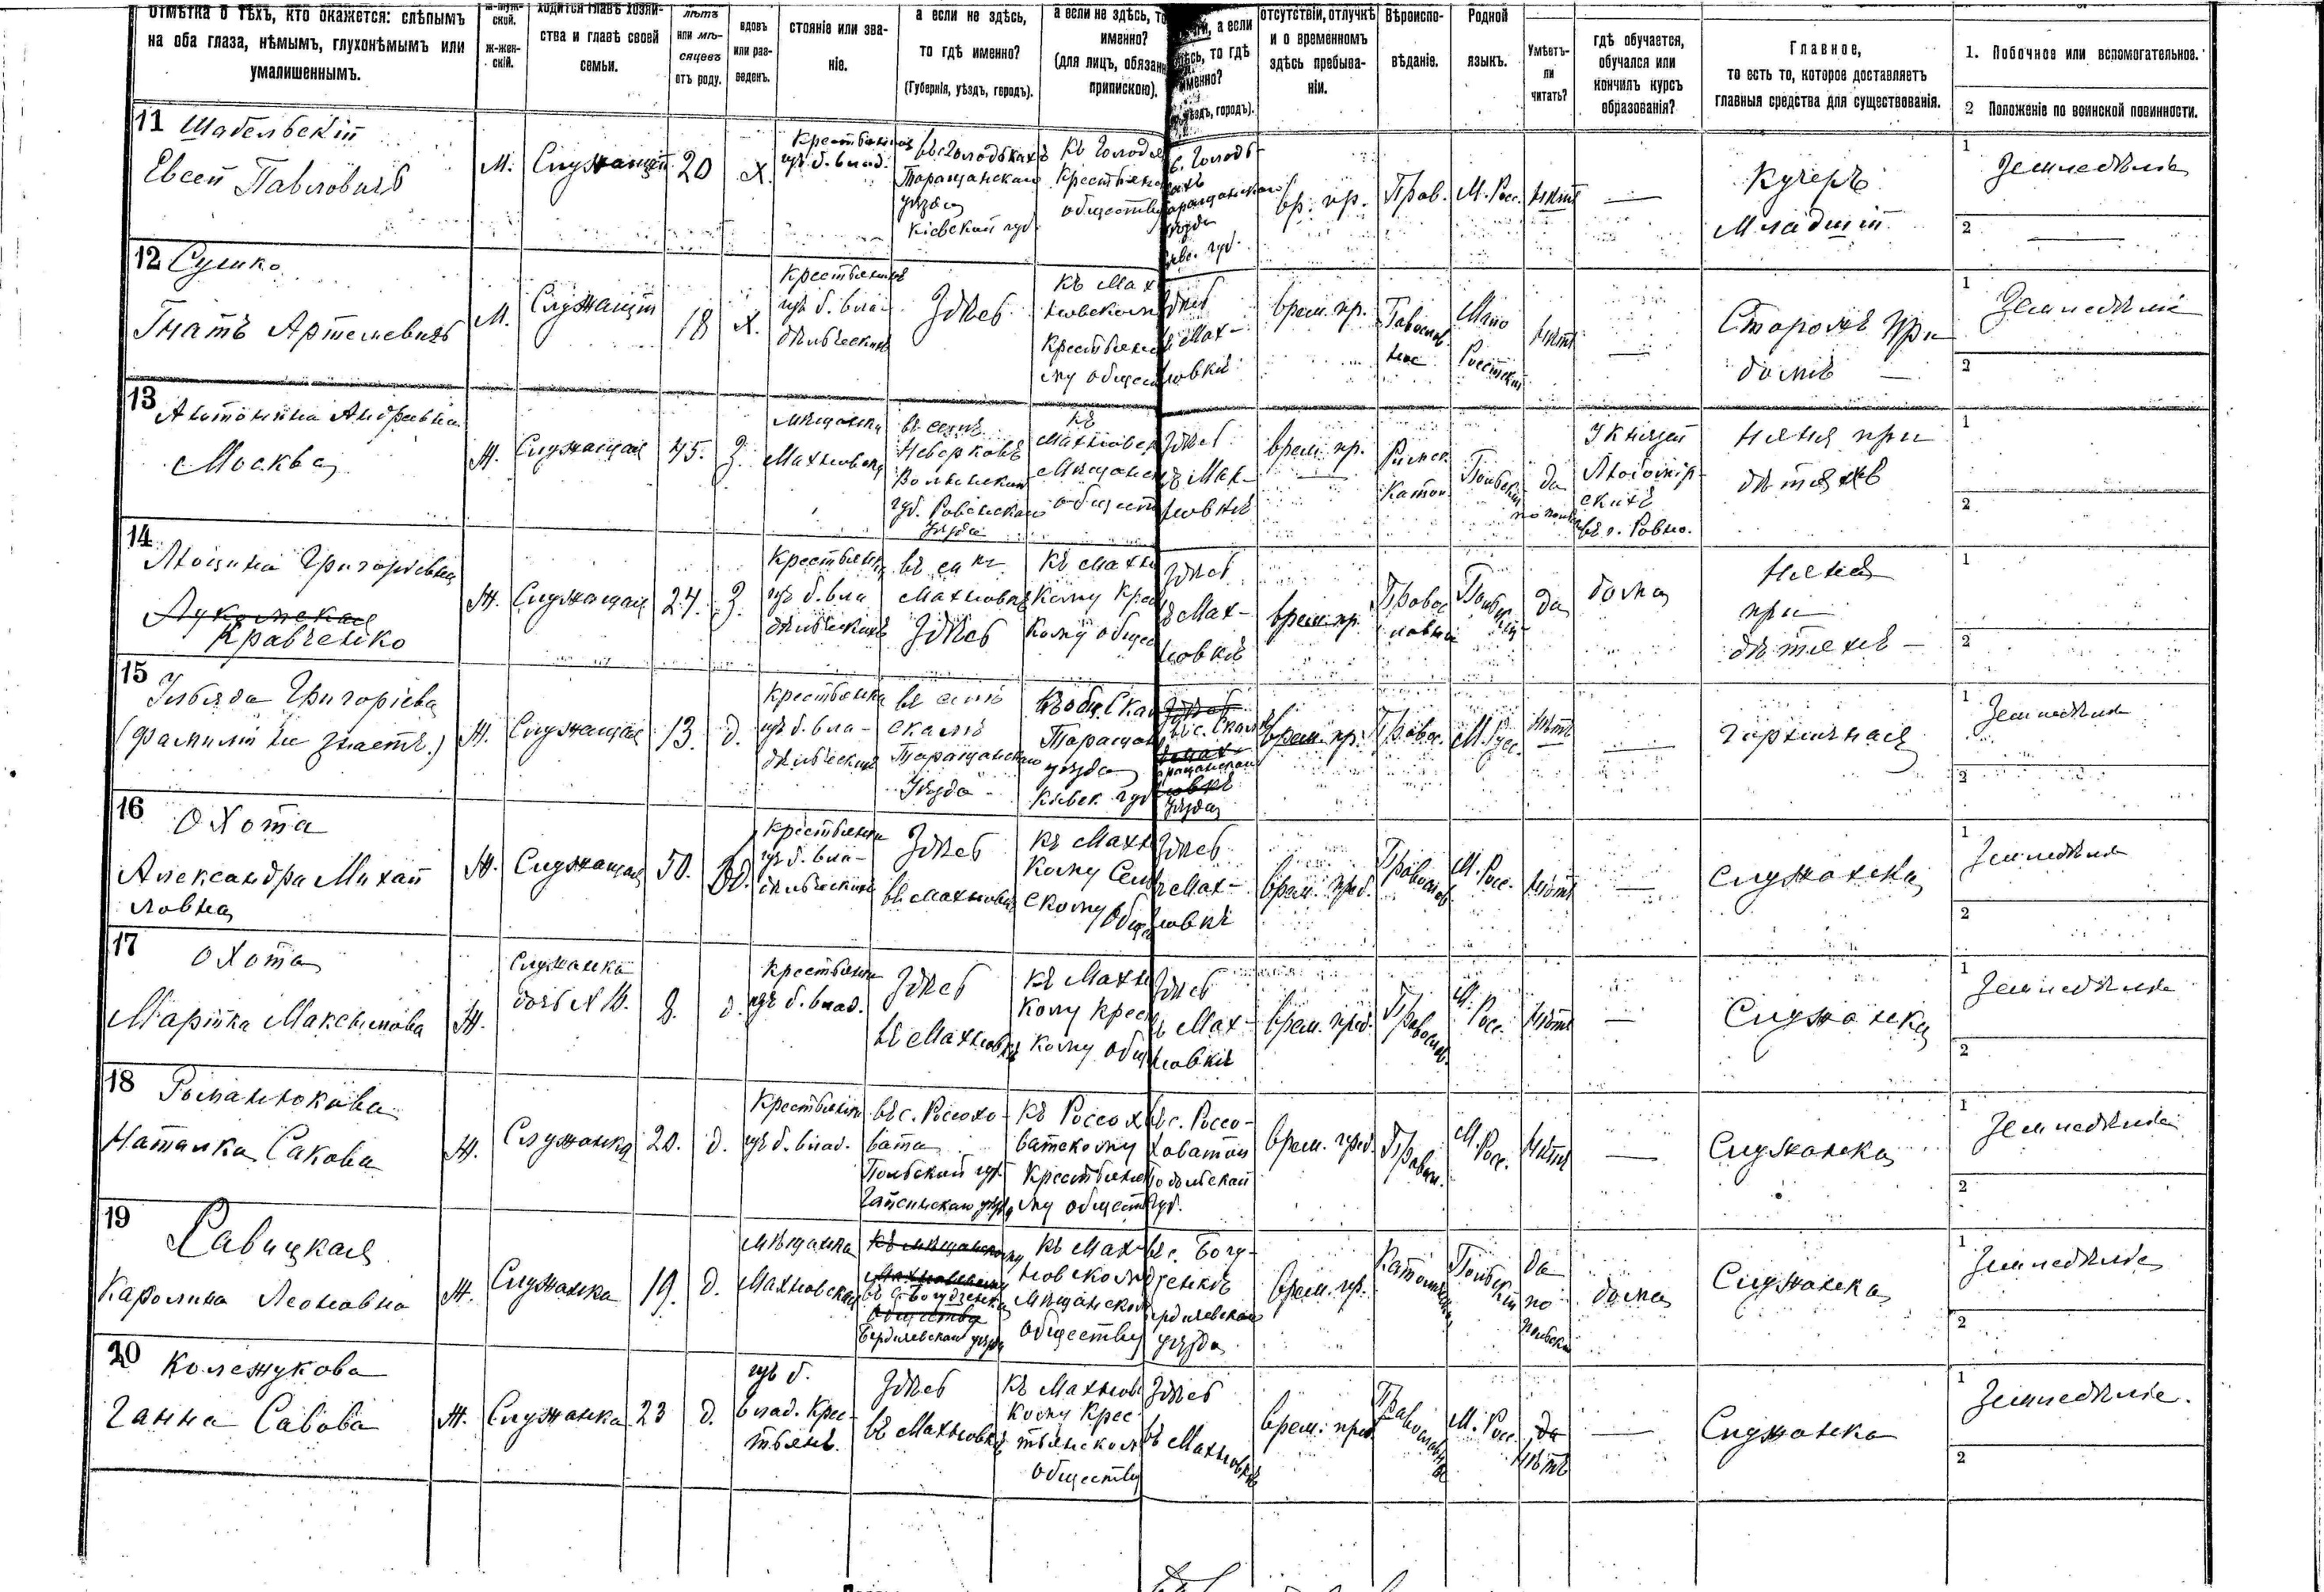 Отмѣтка о тѣхъ, кто окажется: слѣпымъ
на оба глаза, нѣмымъ, глухонѣмымъ или
умалишеннымъ.
м-муж-
ской.
ж-жен-
скій.
ходится главѣ хозяи-
ства и главѣ своей
семьи.
лѣтъ
или мѣ-
сяцевъ
отъ роду.
вдовъ
или раз-
веденъ.
стояніе или зва-
ніе.
а если не здѣсь,
то гдѣ именно?
(Губернія, уѣздъ, городъ).
а если не здѣсь, то
именно?
(для лицъ, обязан
припискою).
а если
то гдѣ
именно?
городъ).
отсутствіи, отлучкѣ
и о временномъ
здѣсь пребыва-
ніи.
Вѣроиспо-
вѣданіе.
Родной
языкъ.
Умѣетъ-
ли
читать?
гдѣ обучается,
обучался или
кончилъ курсъ
образованія?
Главное,
то есть то, которое доставляетъ
главныя средства для существованія.
1. Побочное или вспомогательное.
2 Положеніе по воинской повинности.
11 Шабельскій
Евсей Павловичъ
М.
Служащій
20
Х.
Крестьянинъ
изъ б. влад.
Таращанскаго
уѣзда
Кіевской губ.
Къ Голодь
Крестьянс
обществу
вр. пр.
Прав.
М. Рос.
нѣтъ
—
Кучеръ
Младшій
1
Земледѣліе
2
—
12 Сушко
Гнатъ Артемевичъ
М.
Служащій
18
Х.
Крестьянинъ
изъ б. вла-
дѣльческихъ
Здѣсь
Къ Мах
новском
Крестьянс
му общес
Здѣсь
въ Мах-
новкѣ
врем. пр.
Мало
Россійскій
нѣтъ
—
Сторожъ при
домѣ —
1
Земледѣліе
2
13
Антонина Андреевна
Москва
Ж.
Служащая
45.
З.
Мѣщанка
Махновская
въ селѣ
Волынской
губ. Ровенскаго
Уѣзда
Къ
Махновск
Мѣщанск
общест
Здѣсь
въ Мах-
новкѣ
врем. пр.
Римск.
Катол
Польскій
да
У Князей
Любомір-
скихъ
въ г. Ровно.
няня при
дѣтяхъ
1
2
14
Люцина Григорьевна
Кравченко
Ж.
Служащая
24.
З.
Крестьянка
изъ б. вла
дѣльческихъ
въ
Махновкѣ
Здѣсь
Къ Махн
кому Крес
кому общес
Здѣсь
въ Мах-
новкѣ
врем. пр.
Правос
лавная
Польскій
да
дома
няня
при
дѣтяхъ —
1
2
15
Григорьева
(фамиліи не знаетъ.)
Ж.
Служащая
13.
д.
Крестьянка
изъ б. вла-
дѣльческихъ
въ селѣ
Таращанскаго
Уѣзда
Таращан
уѣзда
Кіевск. губ
Уѣзда
врем. пр.
Правос.
М. Рос.
нѣтъ
—
горничная
1
Земледѣліе
2
16 Охота
Александра Михай
ловна
Ж.
Служащая
50.
Вд.
Крестьянка
изъ б. вла-
дѣльческихъ
Здѣсь
въ Махновкѣ
Къ Махн
кому Сель
скому Общес
Здѣсь
въ Мах-
новкѣ
врем. преб.
Правослов
М. Рос.
нѣтъ
—
Служанка
1
Земледѣліе
2
17 Охота
Марійка Максимова
Ж.
Служанка
дочь № 16.
8.
д.
Крестьянка
изъ б. влад.
Здѣсь
въ Махновкѣ
Къ Махн
кому крес
кому общ
Здѣсь
въ Мах-
новкѣ
врем. преб.
Правослов.
М. Рос.
нѣтъ
—
Служанка
1
Земледѣліе
2
18 Романюкова
Наталка Сакова
Ж.
Служанка
20.
д.
Крестьянка
изъ б. влад.
въ с. Россохо-
вата
Подольской губ.
Гайсинскаго уѣзда
Къ Россох
ватскому
Крестьянс
му общест
въ с. Россо-
ховатой
Подольской
губ.
врем. преб.
Правосл.
М. Рос.
нѣтъ
—
Служанка
1
Земледѣліе
2
19
Равицкая
Каролина Леоновна
Ж.
Служанка
19.
д.
Мѣщанка
Махновская
Бердичевскаго уѣзда
Къ Мах-
новском
Мѣщанском
обществу
Бердичевскаго
уѣзда
врем. пр.
Католическ
Польскій
да
по
польски
дома
Служанка
1
Земледѣліе
2
20 Колежукова
Ганна Савова
Ж.
Служанка
23
д.
изъ б.
влад. крес-
тьянъ.
Здѣсь
въ Махновкѣ
Къ Махнов
кому Крес
тьянском
обществу
Здѣсь
въ Махновкѣ
врем. преб
Православная
М. Рос.
да
нѣтъ
—
Служанка
1
Земледѣліе.
2